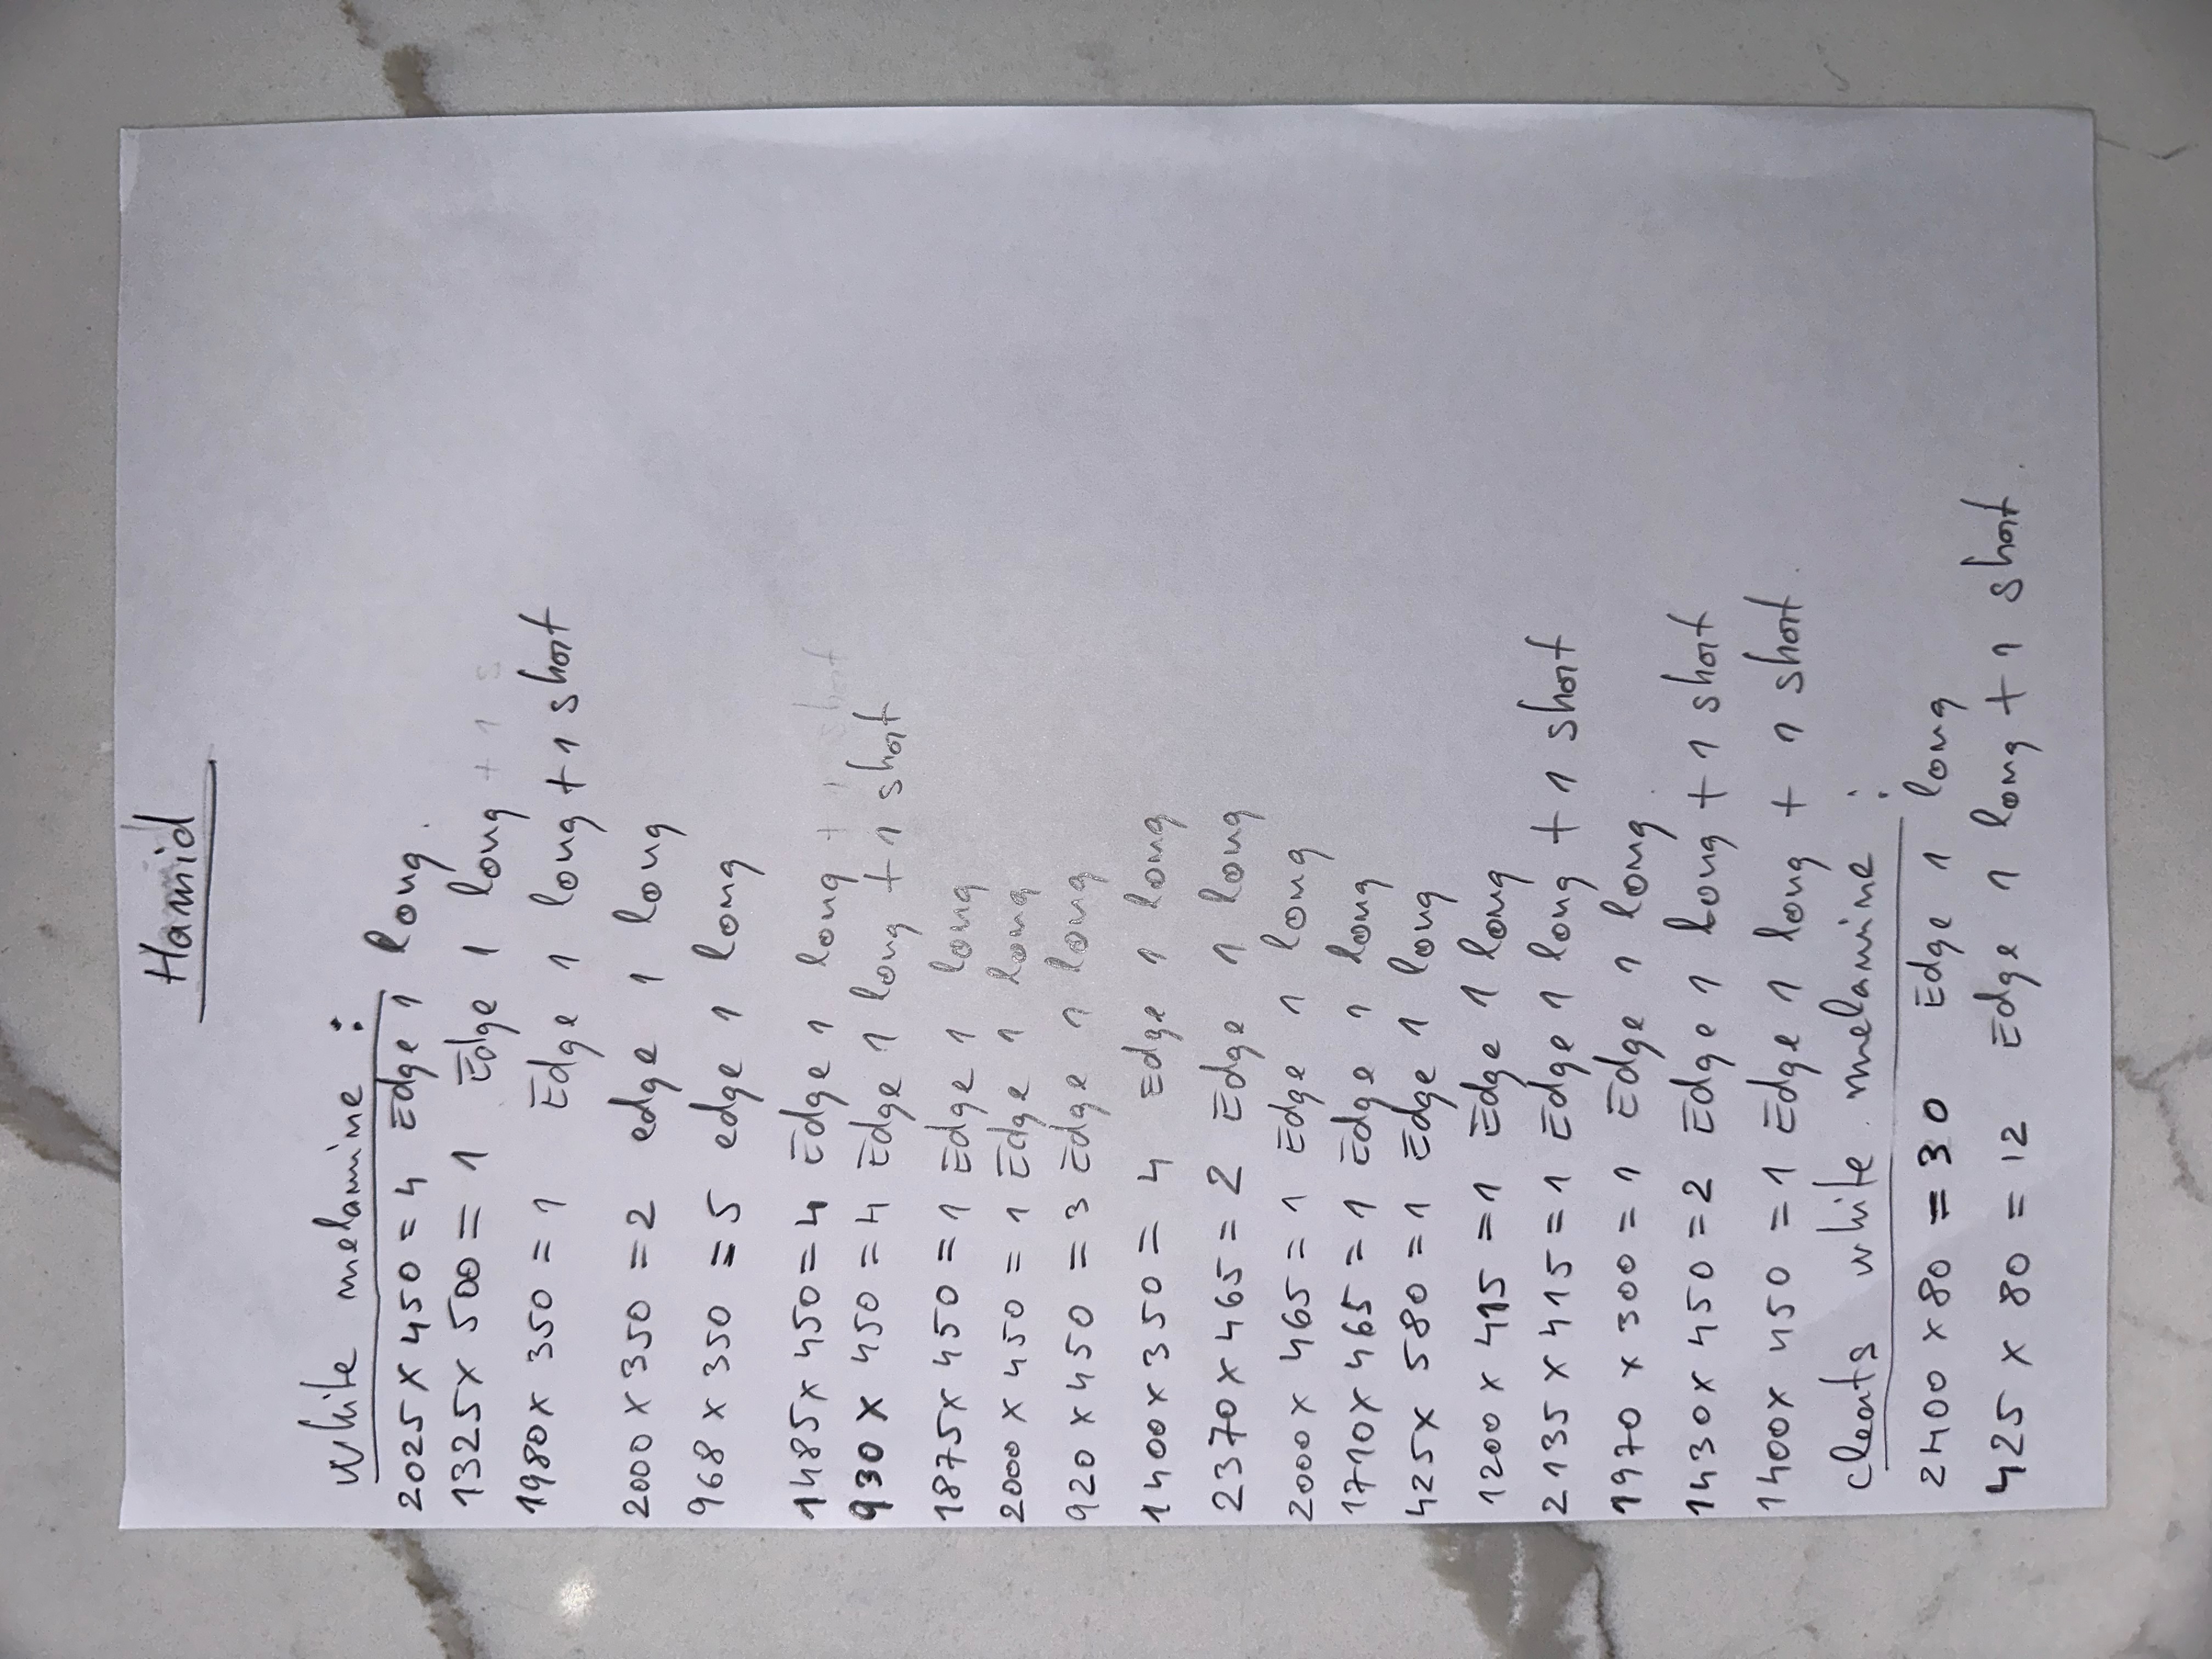 Hamid
White melamine :
2025 x 450 = 4 Edge 1 long.
1325 x 500 = 1 Edge 1 long + 1 s
1980 x 350 = 1 Edge 1 long + 1 short
2000 x 350 = 2 edge 1 long
968 x 350 = 5 edge 1 long
1485 x 450 = 4 Edge 1 long + 1 short
930 x 450 = 4 Edge 1 long + 1 short
1875 x 450 = 1 Edge 1 long
2000 x 450 = 1 Edge 1 long
920 x 450 = 3 Edge 1 long
1400 x 350 = 4 Edge 1 long
2370 x 465 = 2 Edge 1 long
2000 x 465 = 1 Edge 1 long
1710 x 465 = 1 Edge 1 long
425 x 580 = 1 Edge 1 long
1200 x 415 = 1 Edge 1 long
2135 x 415 = 1 Edge 1 long + 1 short
1970 x 300 = 1 Edge 1 long.
1430 x 450 = 2 Edge 1 long + 1 short
1400 x 450 = 1 Edge 1 long + 1 short.
cleats white melamine :
2400 x 80 = 30 Edge 1 long
425 x 80 = 12 Edge 1 long + 1 short.